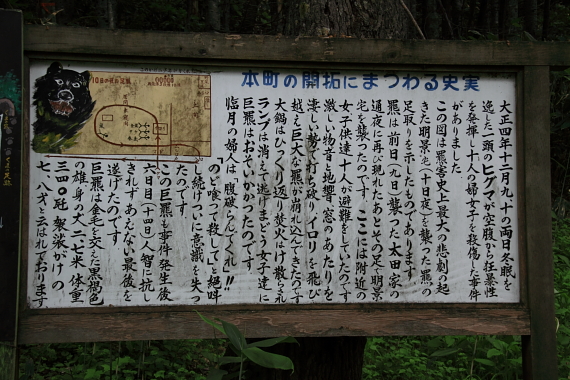 本町の開拓にまつわる史実
大正四年十二月九、十の両日冬眠を
逸した一頭のヒグマが空腹から狂暴性
を発揮し十人の婦女子を殺傷した事件
がありました
この図は羆害史上最大の悲劇の起
きた明景宅(十日夜)を襲った羆の
足取りを示したものであります
羆は前日(九日)襲った太田家の
通夜に再び現れたあとその足で明景
宅を襲ったのです ここには附近の
女子供達十人が避難をしていたのです
激しい物音と地響、窓のあたりを
凄しい勢で打ち破り、イロリを飛び
越え巨大な羆が崩れ込んできたのです
大鍋はひっくり返り焚火はけ散られ
ランプは消えて逃げまどう女子達に
巨羆はおそいかかったのです
臨月の婦人は「腹破らんでくれ」!!
「のど喰って殺して」と絶叫
し続けついに意識を失っ
たのです
この巨羆も事件発生後
六日目(十四日)人智に抗し
きれずあえない最後を
遂げたのです
巨羆は金毛を交えた黒褐色
の雄身の丈二・七米 体重
三四〇瓩 袈裟がけの
七、八才と云はれております